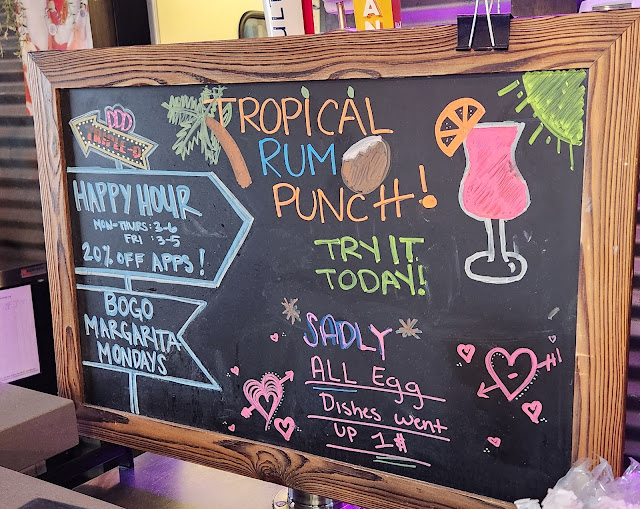 TRIPLE-D
HAPPY HOUR
MON-THURS: 3-6
FRI : 3-5
20% OFF APPS!
BOGO
MARGARITA
MONDAYS
TROPICAL
RUM
PUNCH!
TRY IT
TODAY!
SADLY
ALL Egg
Dishes went
up 1$
Hi